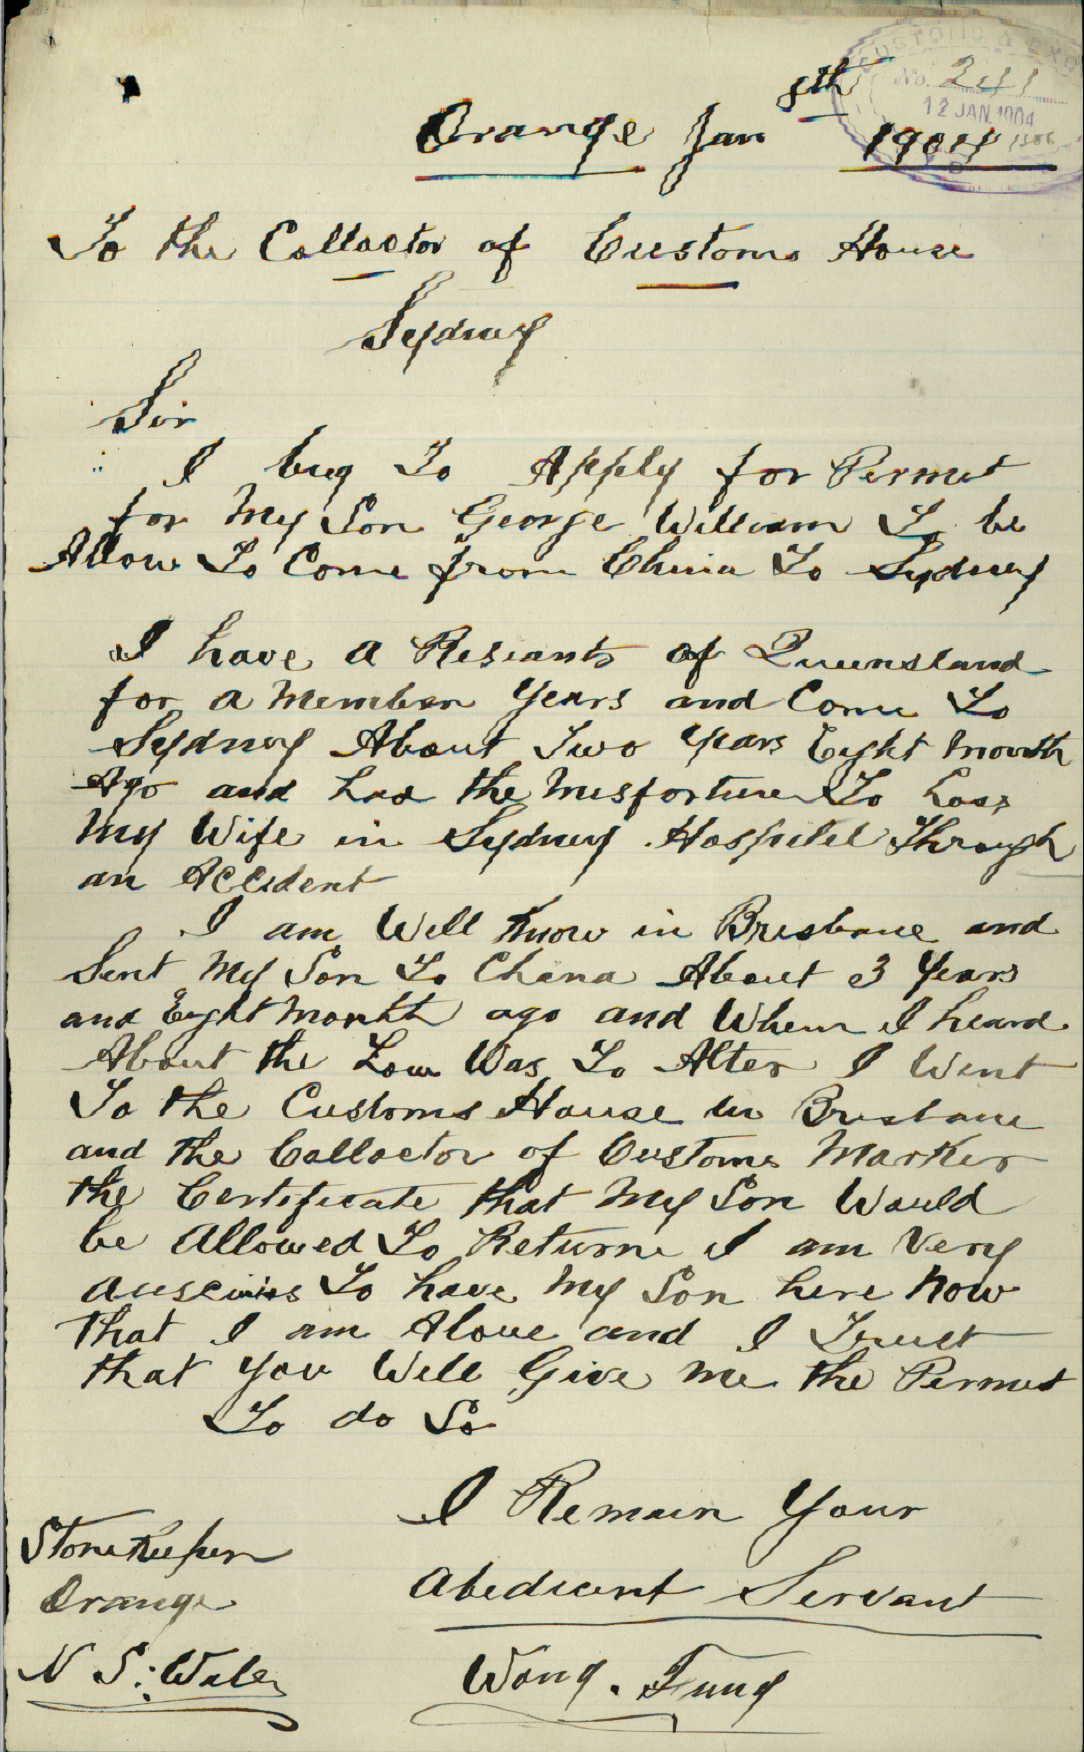 CUSTOMS & EXC
No. 241
12 JAN. 1904
Orange Jan 8th 1904
To the Collactor of Customs House
Sydney
Sir
I beg To Apply for Permit
for My Son George William To be
Allow To Come from China To Sydney
I have a Resiants of Queensland
for a Member Years and Come To
Sydney About Two Years Eight Month
Ago and had the Misfortune To Loss
My Wife in Sydney Hospital Through
an Accident
I am Well Know in Brisbane and
Sent My Son To China About 3 Years
and Eight Month ago and When I heard
About the Law Was To Alter I Went
To the Customs House in Brisbane
and the Collactor of Customs Marker
the Certificate that My Son Would
be Allowed To Returne I am Very
To have My Son here Now
that I am Alone and I Trust
that you Will Give me the Permit
To do So
I Remain Your
Abedient Servant
Wong. Fung
StoreKeeper
Orange
N S: Wales